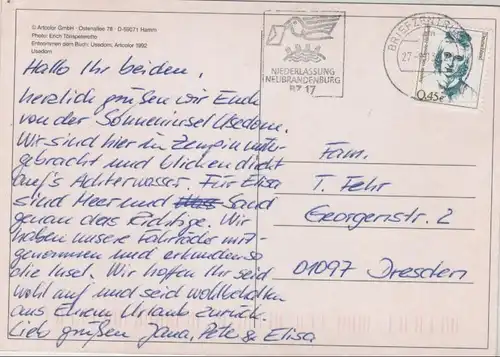 © Artcolor GmbH · Ostenallee 78 · D-59071 Hamm
Photo: Erich Tönspeterotto
Entnommen dem Buch: Usedom, Artcolor 1992
Usedom
NIEDERLASSUNG
NEUBRANDENBURG
BZ 17
BRIEFZENTRUM
27.-
0,45€
Hallo Ihr beiden,
herzlich grüßen wir Euch
von der Sonneninsel Usedom.
Wir sind hier in Zempin unter-
gebracht und blicken dicht
auf's Achterwasser. Für Elisa
sind Meer und Sand
genau das Richtige. Wir
haben unsere Fahrräder mit-
genommen und erkunden so
die Insel. Wir hoffen Ihr seid
wohl auf und seid wohlbehalten
aus Eurem Urlaub zurück.
Lieb grüßen Jana, Pete & Elisa
Fam.
T. Fehr
Georgenstr. 2
01097 Dresden